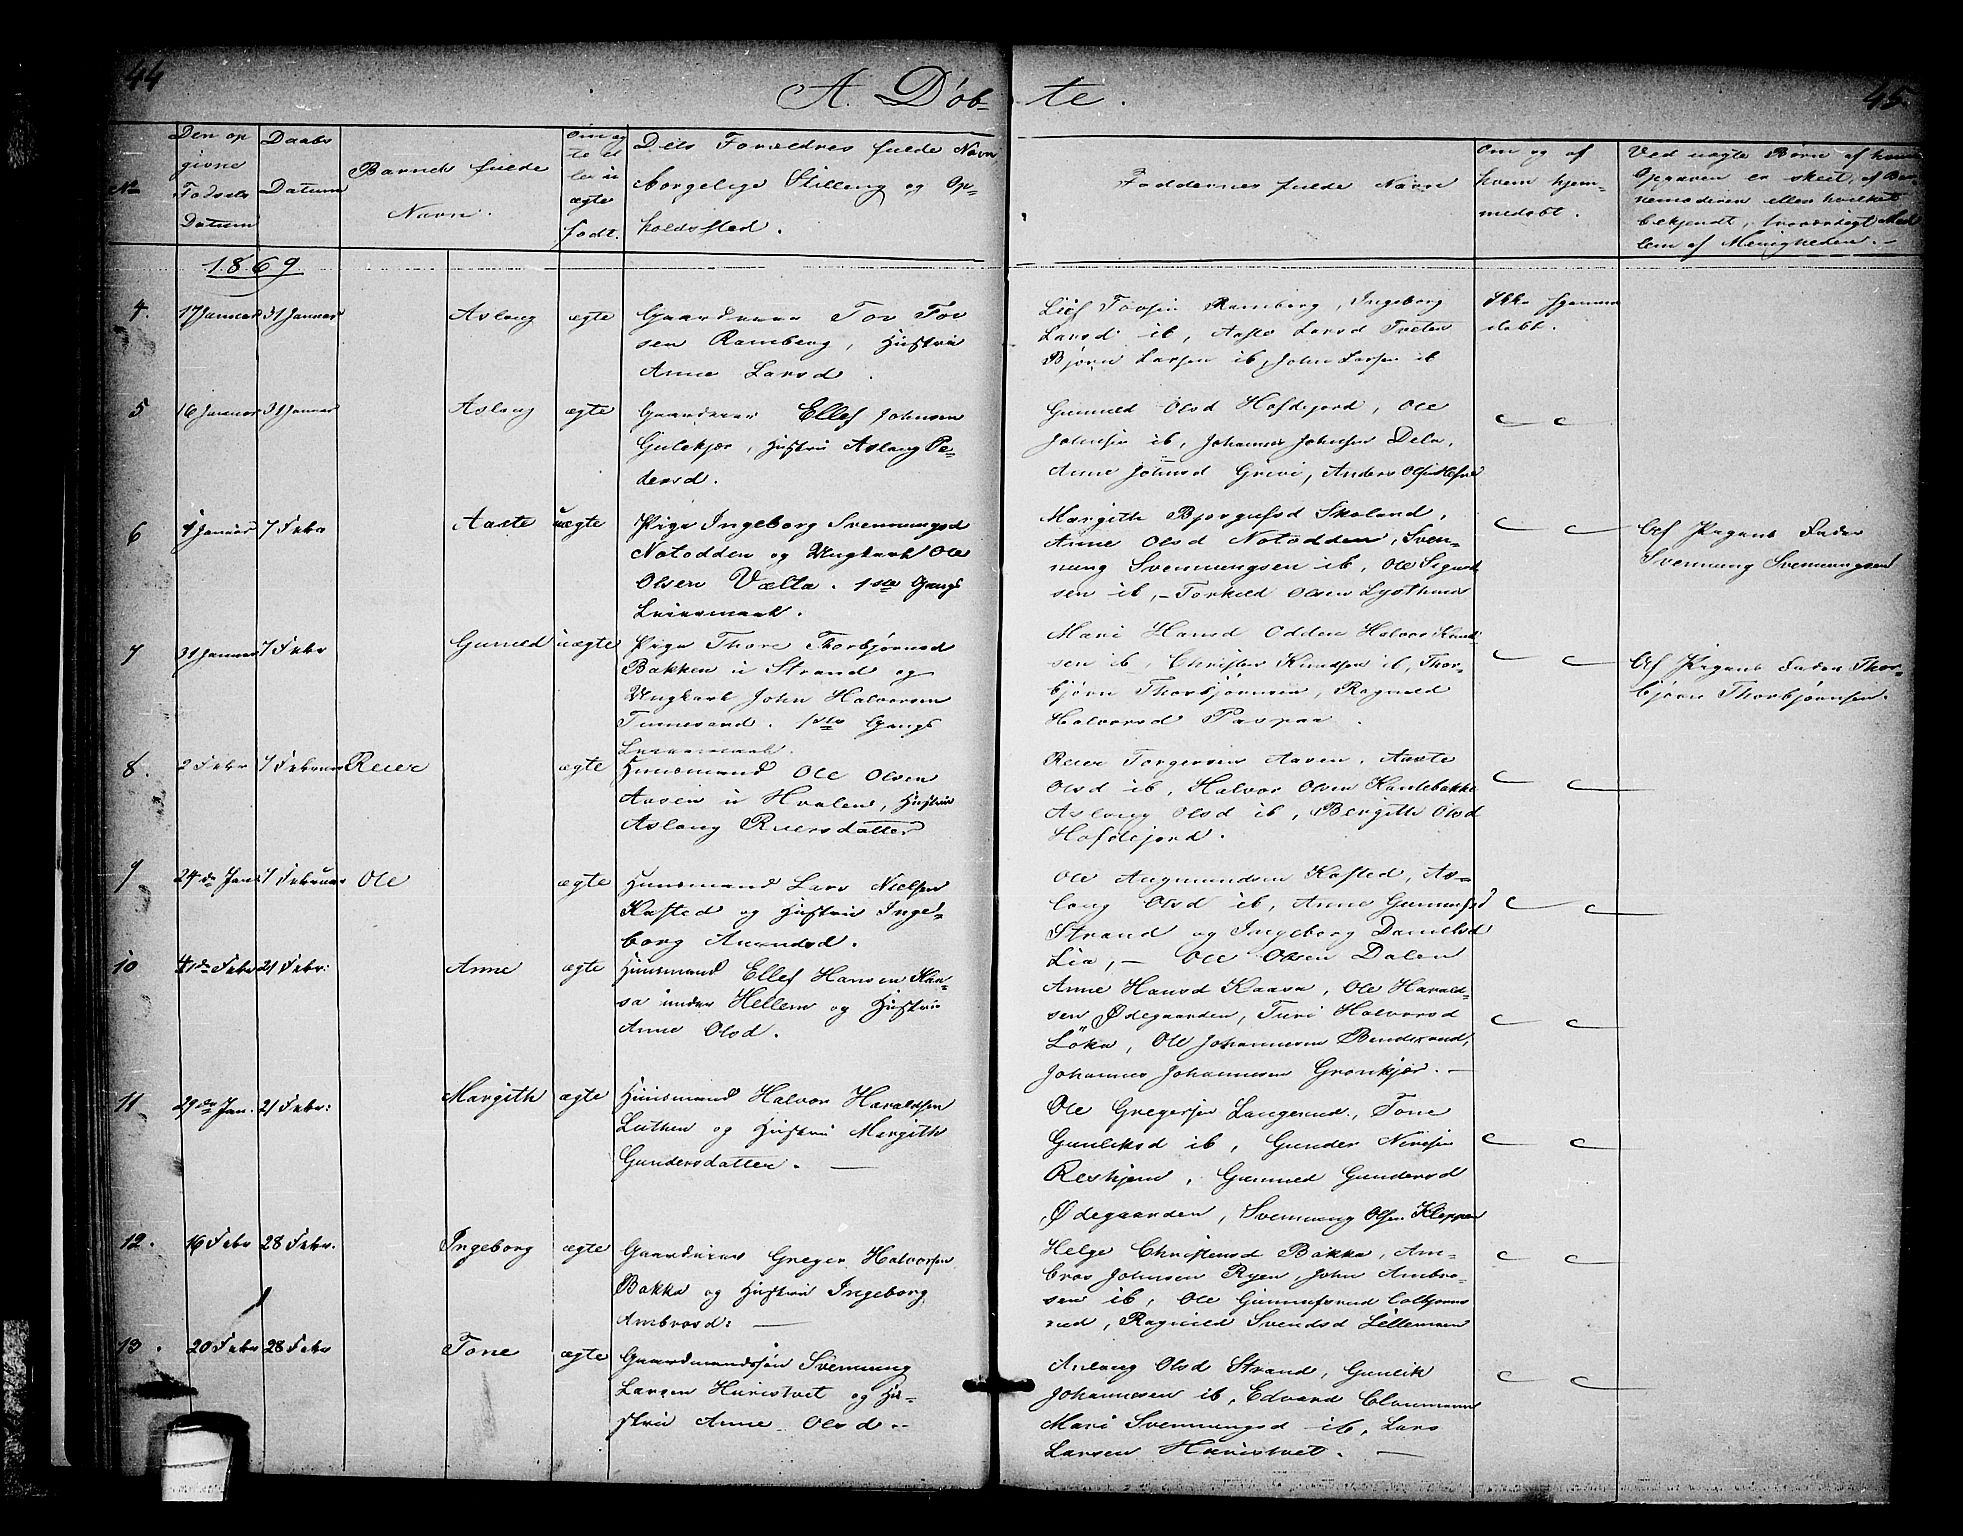 44
A. Døbte.
45.
No
Den op
givne
Fødsels
Datum
Daabs
Datum
Barnets fulde
Navn.
Om æg
te el
ler u
ægte
født.
Dets Forældres fulde Navn
borgelige Stilling og Op-
holdssted.
Faddernes fulde Navne
Om og af
hvem hjem-
medøbt.
Ved uægte Børn af hvem
Opgaven er skeet, af Bar-
nemoderen eller hvilket
bekjendt, troværdigt Med
lem af Menigheden. -
1869
4. 17 Januar 31 Januar Aslaug ægte
Gaardeier Tov Tov
sen Ramberg, Hustru
Anne Larsd.
Lief Tovsen Ramberg, Ingeborg
Larsd ib, Aaste Larsd Tveten
Bjørn Larsen ib, John Larsen ib
Ikke hjemme
døbt.
5 16 Januar 31 Januar Aslaug ægte
Gaardeier Ellef Johnsen
Gulekjær, Hustru Aslaug Pe-
dersd.
Gunild Olsd Hofdejord, Ole
Johnsen ib, Johannes Johnsen Dela,
Anne Johnsd Grivi, Anders Olsen
6 1 Januar 7 Febr Aaste uægte
Pige Ingeborg Svennungsd
Notodden og Ungkarl Ole
Olsen Vælta. 1ste Gangs
Leiermaal.
Margith Bjørgufsd Skoland,
Anne Olsd Notodden, Sven-
nung Svennungsen ib, Ole Sigurd
sen ib, - Torkild Olsen Lysthus
Af Pigens Fader
Svennung Svennungsen
7 31 Januar 7 Febr Gunild uægte
Pige Thore Thorbjørnsd
Bakken u Strand og
Ungkarl John Halvorsen
Tinnesand. 1ste Gangs
Leiermaal.
Mari Hansd Odden Halvor Knud
sen ib, Christen Knudsen ib, Thor-
bjørn Thorbjørnsen, Ragnild
Halvorsd
Af Pigens Fader Thor-
bjørn Thorbjørnsen.
8. 2 Febr 7 Februar Reier ægte
Huusmand Ole Olsen
Aasen u Hvalen, Hustru
Aslaug Reiersdatter
Reier Torgersen Aasen, Aaste
Olsd ib, Halvor Olsen Kanlebakke
Aslaug Olsd ib, Bergitte Olsd
Hofdejord.
9 24de Jan 7 Februar Ole ægte
Huusmand Lars Nielsen
Kasted og Hustru Inge-
borg Amundsd.
Ole Augmundsen Kasted, As-
laug Olsd ib, Anne
Strand og Ingeborg Danielsd
Lia, - Ole Olsen Dalen
10 Febr 21 Febr: Anne ægte
Huusmand Ellef Hansen Kaa-
sa under Hellem og Hustru
Anne Olsd.
Anne Hansd Kaasa, Ole Harald-
sen Ødegaarden, Turi Halvorsd
Löka, Ole Johannesen
Johannes Johannesen Grønkjær. -
11 29de Jan. 21 Febr: Margith ægte
Huusmand Halvor Haraldsen
Luthen og Hustru Margith
Gundersdatter. -
Ole Gregersen Langerud, Tone
Gunleksd ib, Gunder
Reskjem, Gunild Gundersd
Ødegaarden, Svennung Olsen Kleppen
12. 16 Febr 28 Febr. Ingeborg ægte
Gaardeier Greger Halvorsen
Bakka og Hustru Ingeborg
Ambrosd: -
Helge Christensd Bakka, Am-
bros Johnsen Ryen, John Ambro-
sen ib, Ole
rud, Ragnild Svendsd Lillemoen
13. 20 Febr 28 Febr Tone ægte
Gaardmandssøn Svennung
Larsen Huristvet og Hu-
stru Anne Olsd. -
Aslaug Olsd Strand, Gunlik
Johannesen ib, Edvard Claumann
Mari Svennungsd ib, Lars
Larsen Huristvet. -